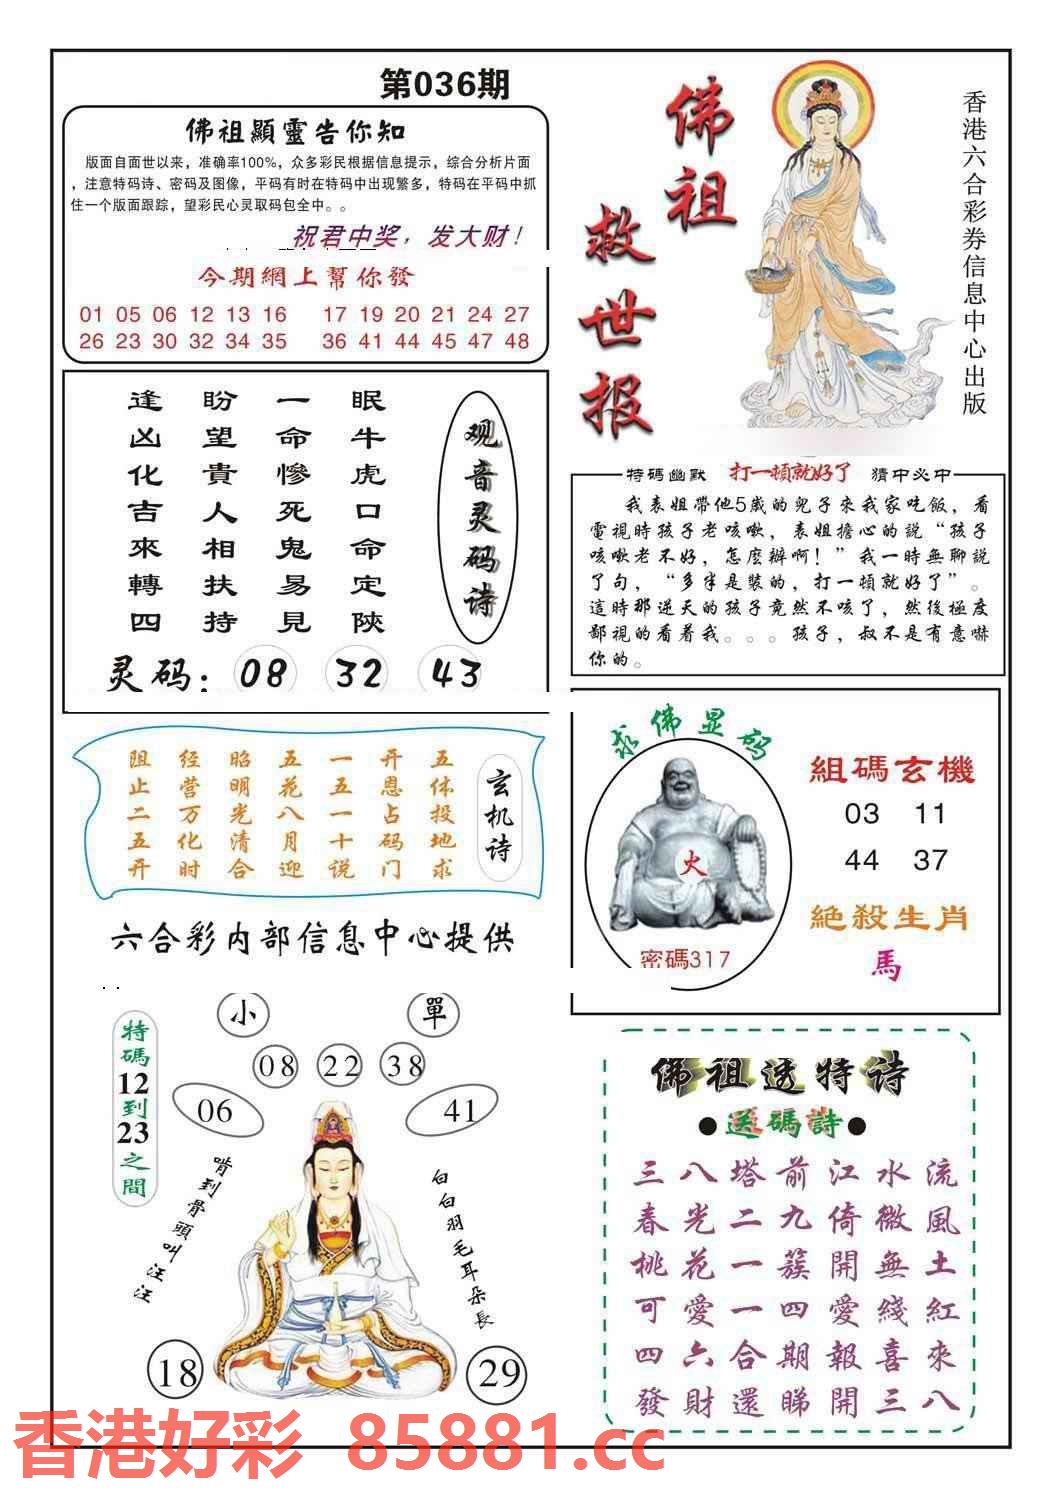 第036期
佛祖顯靈告你知
版面自面世以来，准确率100%，众多彩民根据信息提示，综合分析片面
，注意特码诗、密码及图像，平码有时在特码中出现繁多，特码在平码中抓
住一个版面跟踪，望彩民心灵取码包全中。。
祝君中奖，发大财！
今期網上幫你發
01 05 06 12 13 16 17 19 20 21 24 27
26 23 30 32 34 35 36 41 44 45 47 48
佛祖
救世报
香港六合彩券信息中心出版
观音灵码诗
眠牛虎口命定陝
一命慘死鬼易見
盼望貴人相扶持
逢凶化吉來轉四
灵码：08 32 43
特碼幽默 打一頓就好了 猜中必中
我表姐帶他5歲的兒子來我家吃飯，看
電視時孩子老咳嗽，表姐擔心的說“孩子
咳嗽老不好，怎麼辦啊！”我一時無聊説
了句，“多半是裝的，打一頓就好了”。
這時那逆天的孩子竟然不咳了，然後極度
鄙視的看着我。。。孩子，叔不是有意嚇
你的。
玄机诗
五体投地求
开恩占码门
一五一十说
五花八月迎
昭明光清合
经营万化时
阻止二五开
六合彩内部信息中心提供
求佛显码
火
密碼317
組碼玄機
03 11
44 37
絕殺生肖
馬
小 單
08 22 38
06 41
特碼12到23之間
啃到骨頭叫汪汪
白白羽毛耳朵長
18 29
佛祖透特诗
●送碼詩●
三八塔前江水流
春光二九倚微風
桃花一簇開無土
可愛一四愛綫紅
四六合期報喜來
發財還睇開三八
香港好彩 85881.cc